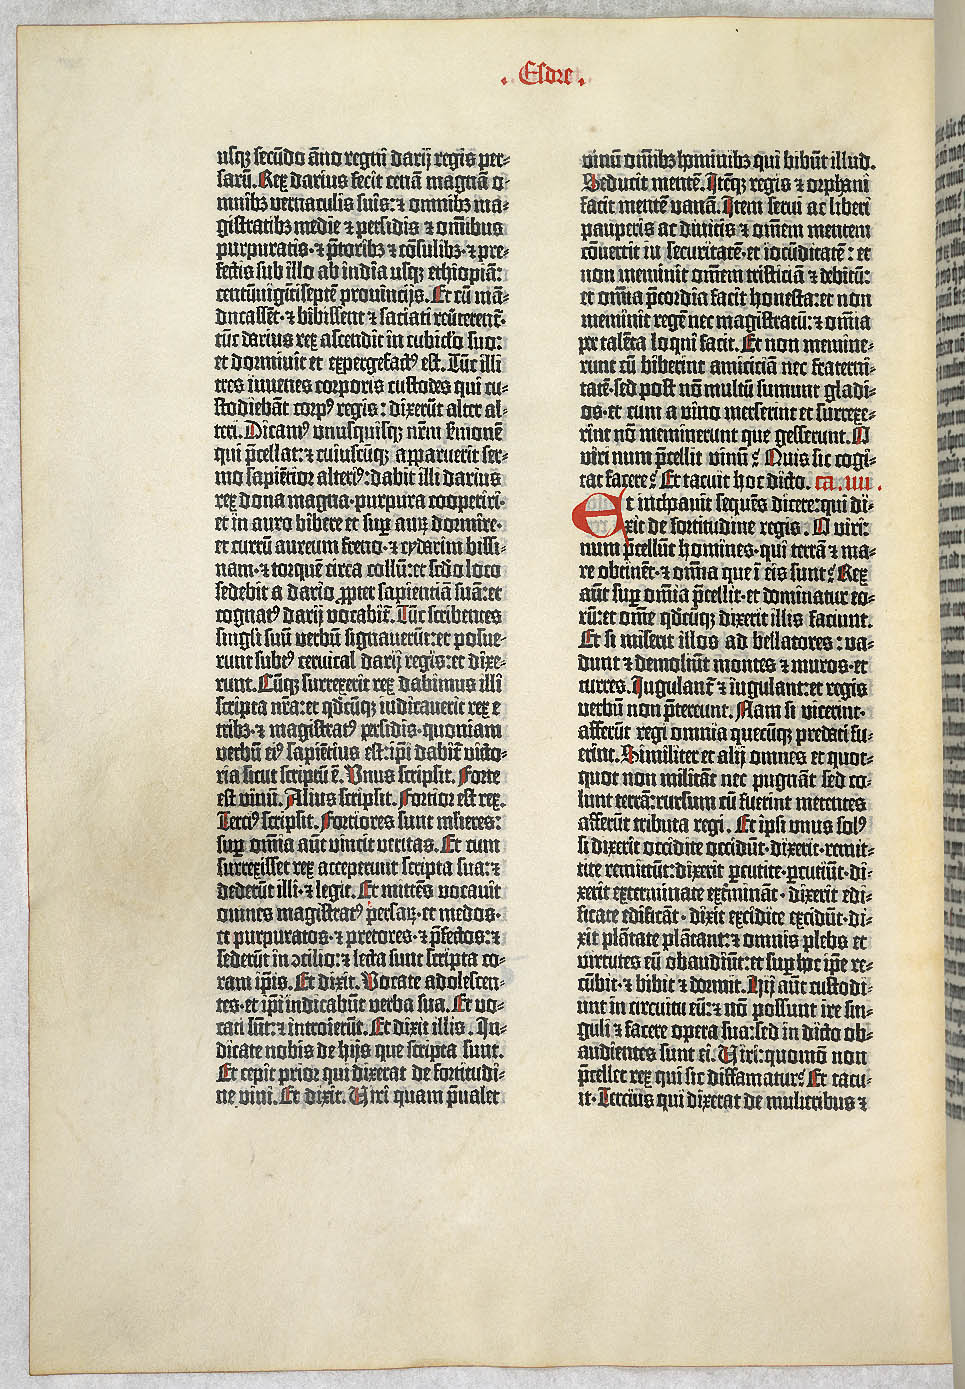 . Esdre .
usqꝫ secūdo āno regni darij regis per-
sarū. Rex darius fecit cenā magnā o-
mnibꝫ vernaculis suis: ⁊ omnibꝫ ma-
gistratibꝫ medie ⁊ persidis ⁊ om̄ibus
purpuratis · ⁊ p̄toribꝫ ⁊ cōsulibꝫ · ⁊ pre-
fectis sub illo ab india usqꝫ ethiopiā:
centūvigītiseptē provincijs. Et cū mā-
ducassēt · ⁊ bibissent ⁊ saciati rēuterent̄ ·
tūc darius rex ascendit in cubic̄lo suo:
et dormivit et expergefactꝰ est. Tūc illi
tres iuvenes corporis custodes qui cu-
stodiebāt corpꝰ regis: dixerūt alter al-
teri. Dicamꝰ vnusquisqꝫ nr̄m s̄monē
qui p̄cellat: ⁊ cuiuscūqꝫ apparuerit ser-
mo sapiētior alteriꝰ: dabit illi darius
rex dona magna · purpura cooperiri ·
et in auro bibere et suꝑ auꝝ dormire ·
et currū aureum freno · ⁊ cydarim bissi-
nam · ⁊ torquē circa collū: et scd̄o loco
sedebit a dario ꝓpter sapientiā suā: et
cognatꝰ darij vocabit̄. Tūc scribentes
singl̄i suū verbū signauerūt: et posue-
runt subtꝰ cervical darij regis: et dixe-
runt. Cūqꝫ surrexerit rex dabimus illi
scripta nr̄a: et qd̄cūqꝫ iudicauerit rex e
tribꝫ · ⁊ magistratꝰ persidis · quoniam
verbū eiꝰ sapiētius est: ip̄i dabit̄ victo-
ria sicut scriptū ē. Vnus scripsit. Forte
est vinū. Alius scripsit. Fortior est rex.
Terciꝰ scripsit. Fortiores sunt ml̄ieres:
suꝑ om̄ia aūt vincit veritas. Et cum
surrexisset rex acceperunt scripta sua: ⁊
dederūt illi · ⁊ legit. Et mittēs vocauit
omnes magistratꝰ persaꝝ · et medos ·
et purpuratos · ⁊ pretores · ⁊ p̄fectos: ⁊
sederūt in ꝯcilio: ⁊ lecta sunt scripta co-
ram ip̄is. Et dixit. Vocate adolescen-
tes · et ip̄i indicabūt verba sua. Et vo-
cati sūt: ⁊ introierūt. Et dixit illis. In-
dicate nobis de hijs que scripta sunt.
Et cepit prior qui dixerat de fortitudi-
ne vini. Et dixit. Viri quam p̄ualet
vinū om̄ibꝫ hominibꝫ qui bibūt illud.
Seducit mentē. Itēqꝫ regis ⁊ orphani
facit mentē vanā. Item servi ac liberi
pauperis ac divitis ⁊ om̄em mentem
cōvertit in securitatē · et iocūditatē: et
non meminit om̄em tristiciā ⁊ debitū:
et om̄ia p̄cordia facit honesta: et non
meminit regē nec magistratū: ⁊ om̄ia
per talēta loqui facit. Et non memine-
runt cū biberint amiciciā nec fraterni-
tatē · sed post nō multū sumunt gladi-
os · et cum a vino merserint et surrexe-
rint nō meminerunt que gesserunt. O
viri num p̄cellit vinū? Quis sic cogi-
tat facere? Et tacuit hoc dicto. ca. iiii.
Et inchoauit sequēs dicere: qui di-
xit de fortitudine regis. O viri:
num p̄cellūt homines · qui terrā ⁊ ma-
re obtinēt · ⁊ om̄ia que ī eis sunt? Rex
aūt suꝑ om̄ia p̄cellit · et dominatur eo-
rū: et om̄e qd̄cūqꝫ dixerit illis faciunt.
Et si miserit illos ad bellatores: va-
dunt ⁊ demoliūt montes ⁊ muros · et
turres. Iugulant̄ ⁊ iugulant: et regis
verbū non p̄tereunt. Nam si vicerint ·
afferūt regi omnia quecūqꝫ predati fu-
erint. Similiter et alij omnes et quot-
quot non militāt nec pugnāt sed co-
lunt terrā: rursum cū fuerint metentes
afferūt tributa regi. Et ip̄i vnus solꝰ
si dixerit occidite occidūt · dixerit · remit-
tite remittūt: dixerit ꝑcutite · ꝑcutiūt · di-
xerit exterminate ext̄mināt · dixerit edi-
ficate edificāt · dixit excidite excidūt · di-
xit plātate plātant: ⁊ omnis plebs et
virtutes eū obaudiūt: et suꝑ hec ip̄e re-
cūbit · ⁊ bibit ⁊ dormit. Hij aūt custodi-
unt in circuitu eū: ⁊ nō possunt ire sin-
guli ⁊ facere opera sua: sed in dicto ob-
audientes sunt ei. Viri: quomō non
p̄cellet rex qui sic diffamatur? Et tacu-
it · Tercius qui dixerat de mulieribus ⁊